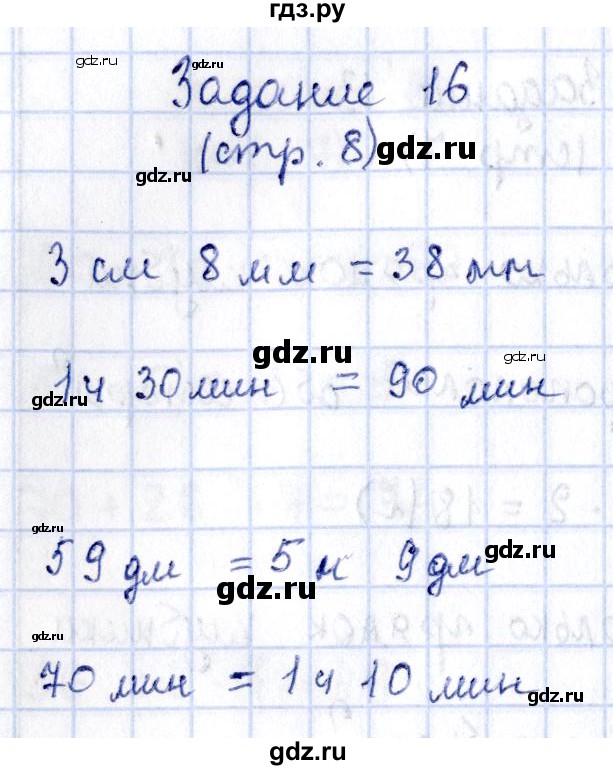 гдз.ру
gdz.ru
Задание 16
(стр. 8) gdz.ru
gdz.ru
3 см 8 мм = 38 мм
gdz.ru
gdz.ru
1 ч 30 мин = 90 мин
gdz.ru
gdz.ru
59 дм = 5 м 9 дм
gdz.ru
gdz.ru
gdz.ru
70 мин = 1 ч 10 мин
gdz.ru